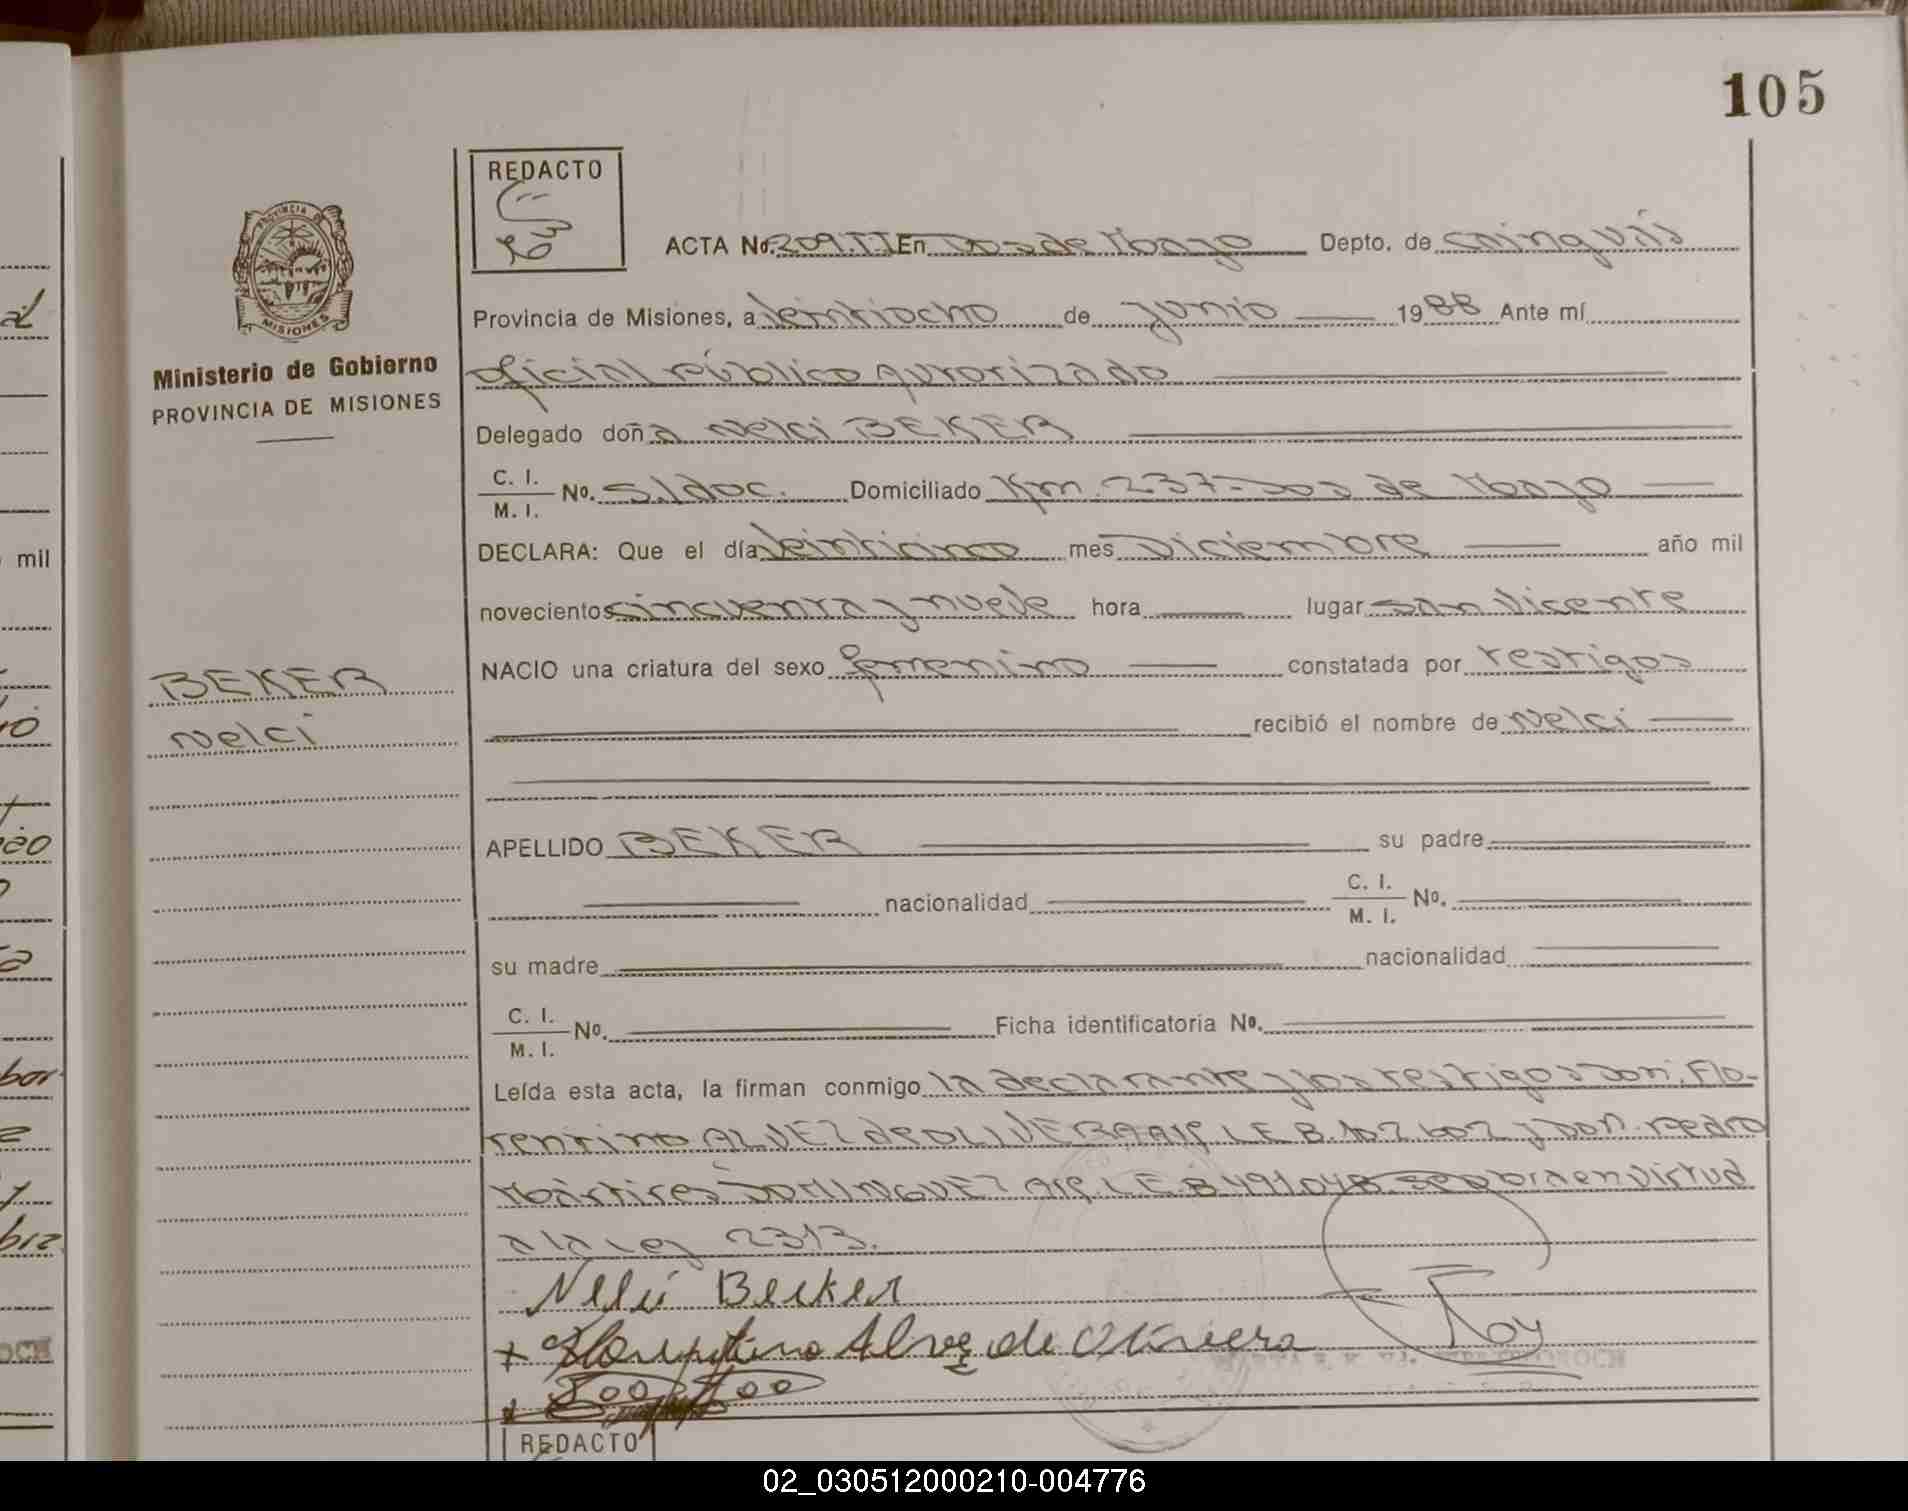 105
REDACTO
PROVINCIA DE
MISIONES
Ministerio de Gobierno
PROVINCIA DE MISIONES
ACTA No. 209.TI En Dos de Mayo Depto. de Cainguás
Provincia de Misiones, a Veintiocho de junio 1988 Ante mí
oficial público autorizado
Delegado doña Nelci BEKER
C. I.
M. I. No. S/doc. Domiciliado Km. 237-Dos de Mayo
DECLARA: Que el día Veinticinco mes Diciembre año mil
novecientos cincuenta y nueve hora lugar San Vicente
NACIO una criatura del sexo femenino constatada por testigos
BEKER
Nelci
recibió el nombre de Nelci
APELLIDO BEKER su padre
nacionalidad C. I.
M. I. No.
su madre nacionalidad
C. I.
M. I. No. Ficha identificatoria No.
Leída esta acta, la firman conmigo la declarante y los testigos Don. Flo-
rentino ALVEZ de OLIVERA arg. L.E. 8.102.602 y Don. Pedro
Martires DOMINGUEZ arg. L.E. 8.491.048 Se labra en virtud
a la Ley 2313.
Nelci Becker
+ Florentino Alvez de Olivera
REDACTO
mil
02_030512000210-004776